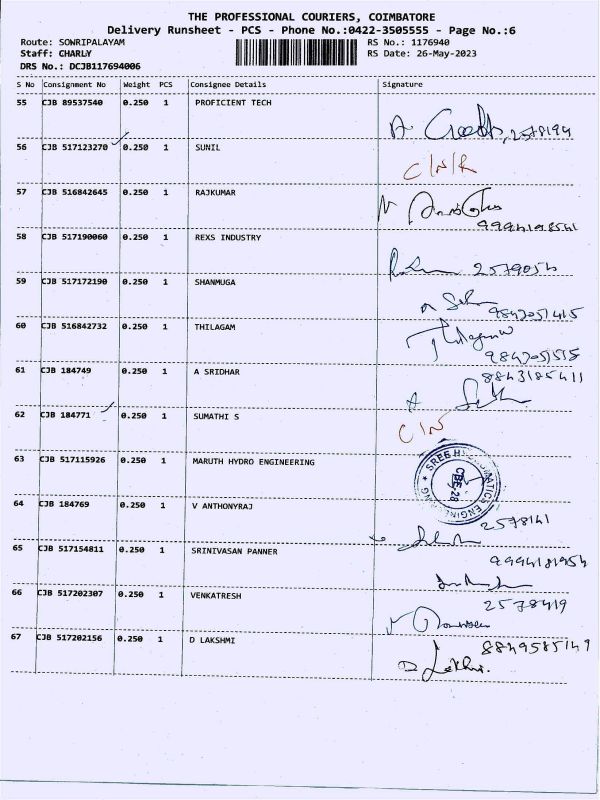 THE PROFESSIONAL COURIERS, COIMBATORE
Delivery Runsheet - PCS - Phone No.:0422-3505555 - Page No.:6
Route: SOWRIPALAYAM RS No.: 1176940
Staff: CHARLY RS Date: 26-May-2023
DRS No.: DCJB117694006
S No Consignment No Weight PCS Consignee Details Signature
55 CJB 89537540 0.250 1 PROFICIENT TECH
A
56 CJB 517123270 0.250 1 SUNIL
C/N/R
57 CJB 516842645 0.250 1 RAJKUMAR
58 CJB 517190060 0.250 1 REXS INDUSTRY
59 CJB 517172190 0.250 1 SHANMUGA
9842051415
60 CJB 516842732 0.250 1 THILAGAM
Thilagam
9842051515
61 CJB 184749 0.250 1 A SRIDHAR
8843185411
A
62 CJB 184771 0.250 1 SUMATHI S
C/N
63 CJB 517115926 0.250 1 MARUTH HYDRO ENGINEERING
CBE-28
64 CJB 184769 0.250 1 V ANTHONYRAJ
2578141
65 CJB 517154811 0.250 1 SRINIVASAN PANNER
9994181954
66 CJB 517202307 0.250 1 VENKATRESH
2578419
67 CJB 517202156 0.250 1 D LAKSHMI
8849585149
D